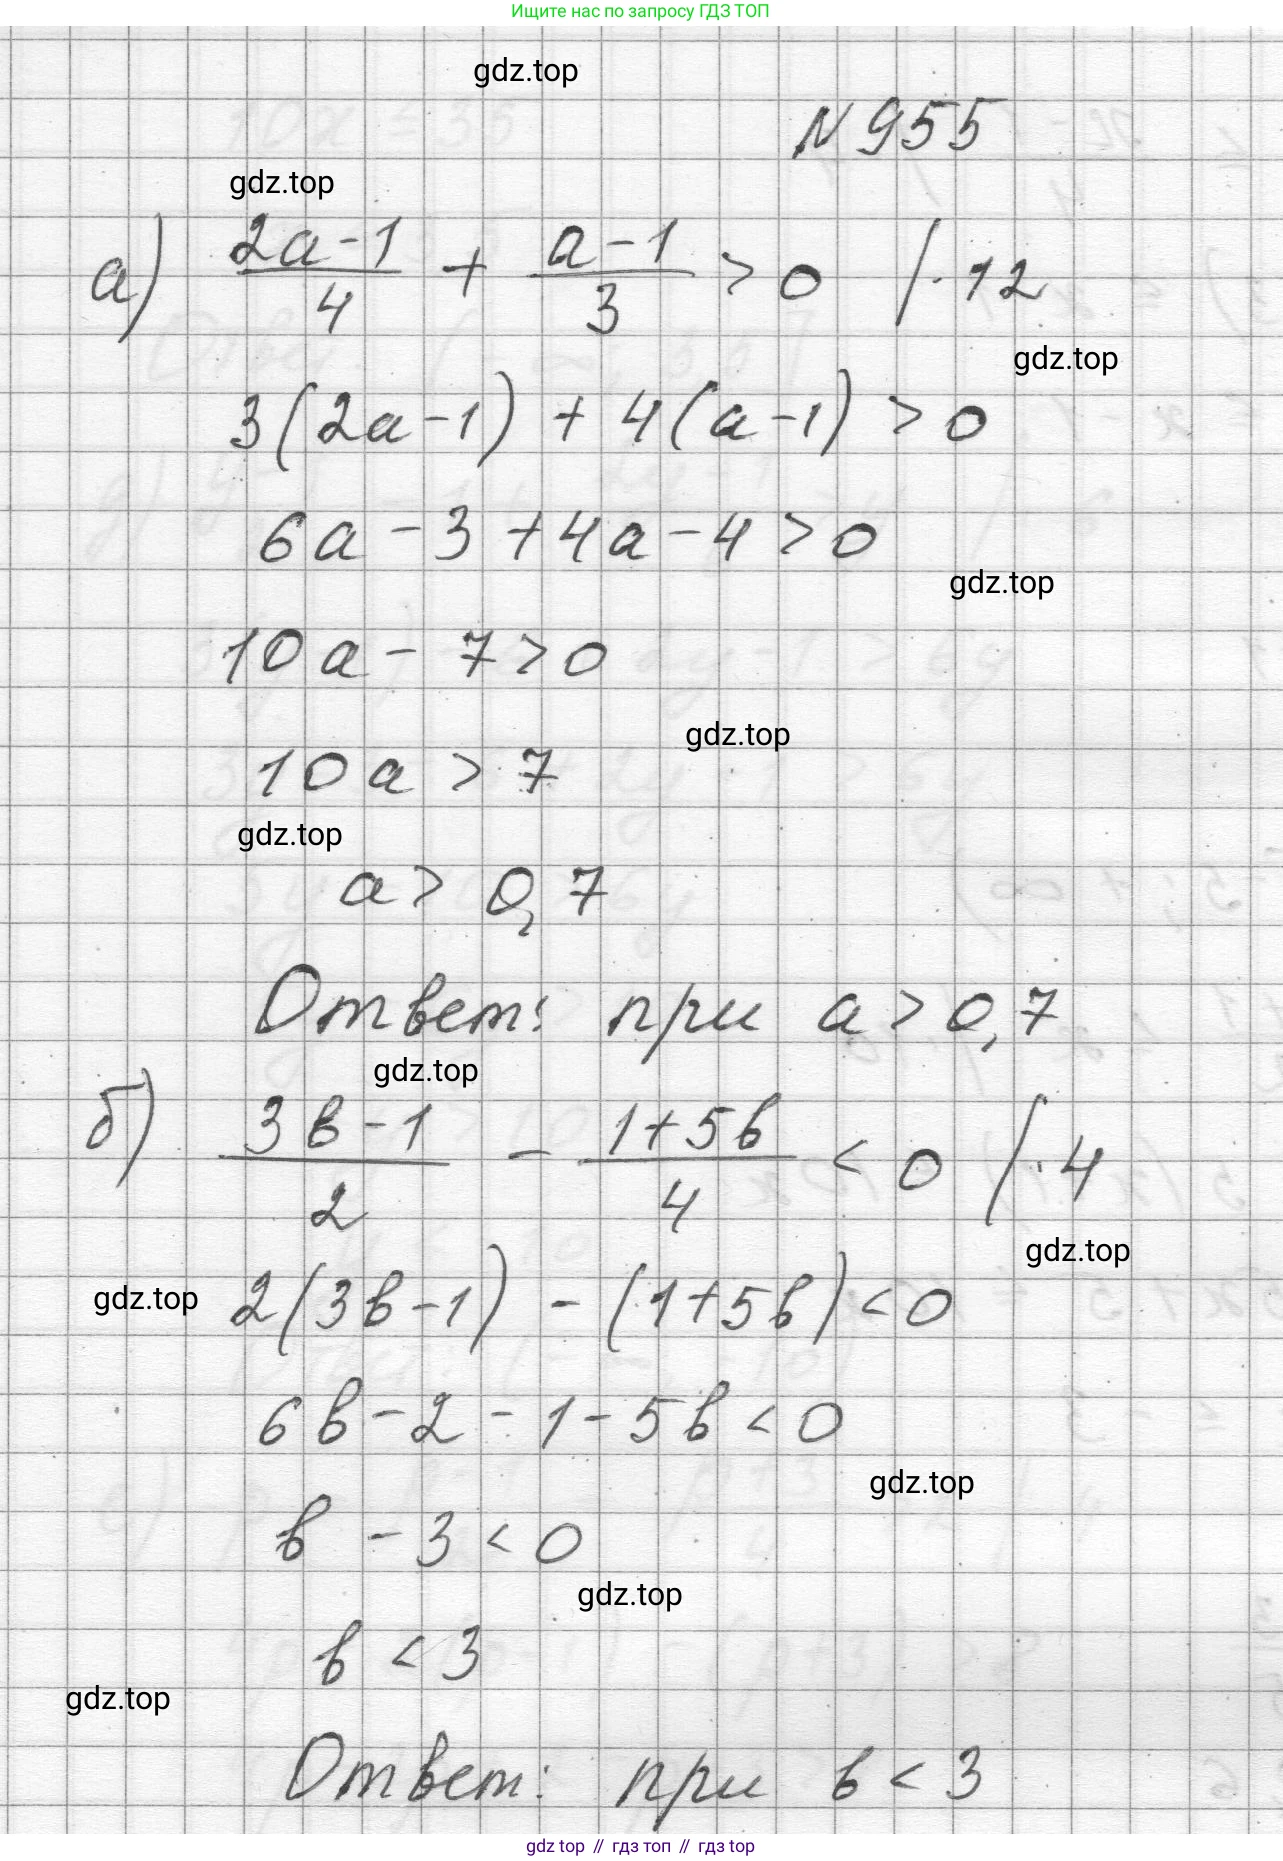 Ищите нас по запросу ГДЗ ТОП
gdz.top
N 955
gdz.top
а) (2a-1)/4 + (a-1)/3 > 0 /·12
gdz.top
3(2a-1) + 4(a-1) > 0
6a - 3 + 4a - 4 > 0
gdz.top
10a - 7 > 0
gdz.top
10a > 7
gdz.top
a > 0,7
Ответ: при a > 0,7
gdz.top
б) (3в-1)/2 - (1+5в)/4 < 0 /·4
gdz.top
gdz.top
2(3в-1) - (1+5в) < 0
6в - 2 - 1 - 5в < 0
gdz.top
в - 3 < 0
gdz.top
в < 3
gdz.top
Ответ: при в < 3
gdz top // гдз топ // гдз top